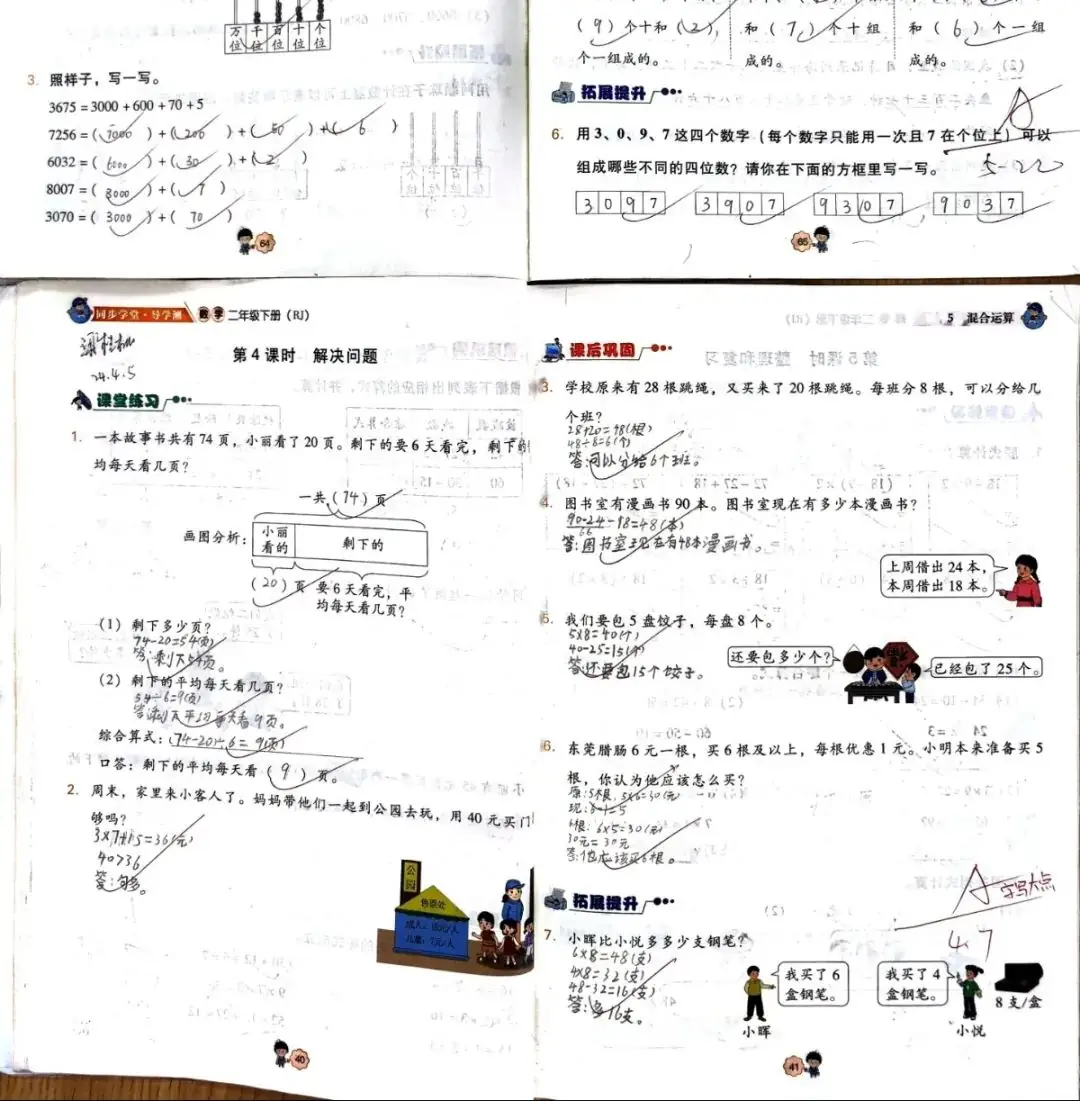 万位 千位 百位 十位 个位
3. 照样子，写一写。
3675 = 3000 + 600 + 70 + 5
7256 = ( 7000 ) + ( 200 ) + ( 50 ) + ( 6 )
6032 = ( 6000 ) + ( 30 ) + ( 2 )
8007 = ( 8000 ) + ( 7 )
3070 = ( 3000 ) + ( 70 )
64
( 9 ) 个十和 ( 2 )
个一组成的。
和 ( 7 ) 个十组
成的。
和 ( 6 ) 个一组
成的。
拓展提升
A
6. 用 3、0、9、7 这四个数字（每个数字只能用一次且 7 在个位上）可以
组成哪些不同的四位数？请你在下面的方框里写一写。
5-22
3 0 9 7
3 9 0 7
9 3 0 7
9 0 3 7
65
同步学堂·导学测 数学 二年级下册（RJ）
24.4.5
第 4 课时 解决问题
课堂练习
1. 一本故事书共有 74 页，小丽看了 20 页。剩下的要 6 天看完，剩下的
均每天看几页？
一共 ( 74 ) 页
画图分析：
小丽看的
剩下的
( 20 ) 页 要 6 天看完，平
均每天看几页？
（1）剩下多少页？
74-20=54(页)
答:剩下54页。
（2）剩下的平均每天看几页？
54÷6=9(页)
答:剩下平均每天看9页。
综合算式：(74-20)÷6=9(页)
口答：剩下的平均每天看 ( 9 ) 页。
2. 周末，家里来小客人了。妈妈带他们一起到公园去玩，用 40 元买门
够吗？
3×7+15=36(元)
40>36
答:够。
公园
售票处
成人：15元/人
儿童：7元/人
40
5 混合运算
课后巩固
3. 学校原来有 28 根跳绳，又买来了 20 根跳绳。每班分 8 根，可以分给几
个班？
28+20=48(根)
48÷8=6(个)
答:可以分给6个班。
4. 图书室有漫画书 90 本。图书室现在有多少本漫画书？
90-24-18=48(本)
66
答:图书室现在有48本漫画书。
上周借出 24 本，
本周借出 18 本。
5. 我们要包 5 盘饺子，每盘 8 个。
5×8=40(个)
40-25=15(个)
答:还要包15个饺子。
还要包多少个？
已经包了 25 个。
6. 东莞腊肠 6 元一根，买 6 根及以上，每根优惠 1 元。小明本来准备买 5
根，你认为他应该怎么买？
原:5根. 5×6=30(元)
现:6-1=5
6根: 6×5=30(元)
30元=30元
答:他应该买6根。
拓展提升
A 字写大点
4.7
7. 小晖比小悦多多少支钢笔？
6×8=48(支)
4×8=32(支)
48-32=16(支)
答:多16支。
我买了 6
盒钢笔。
小晖
我买了 4
盒钢笔。
小悦
8 支/盒
41